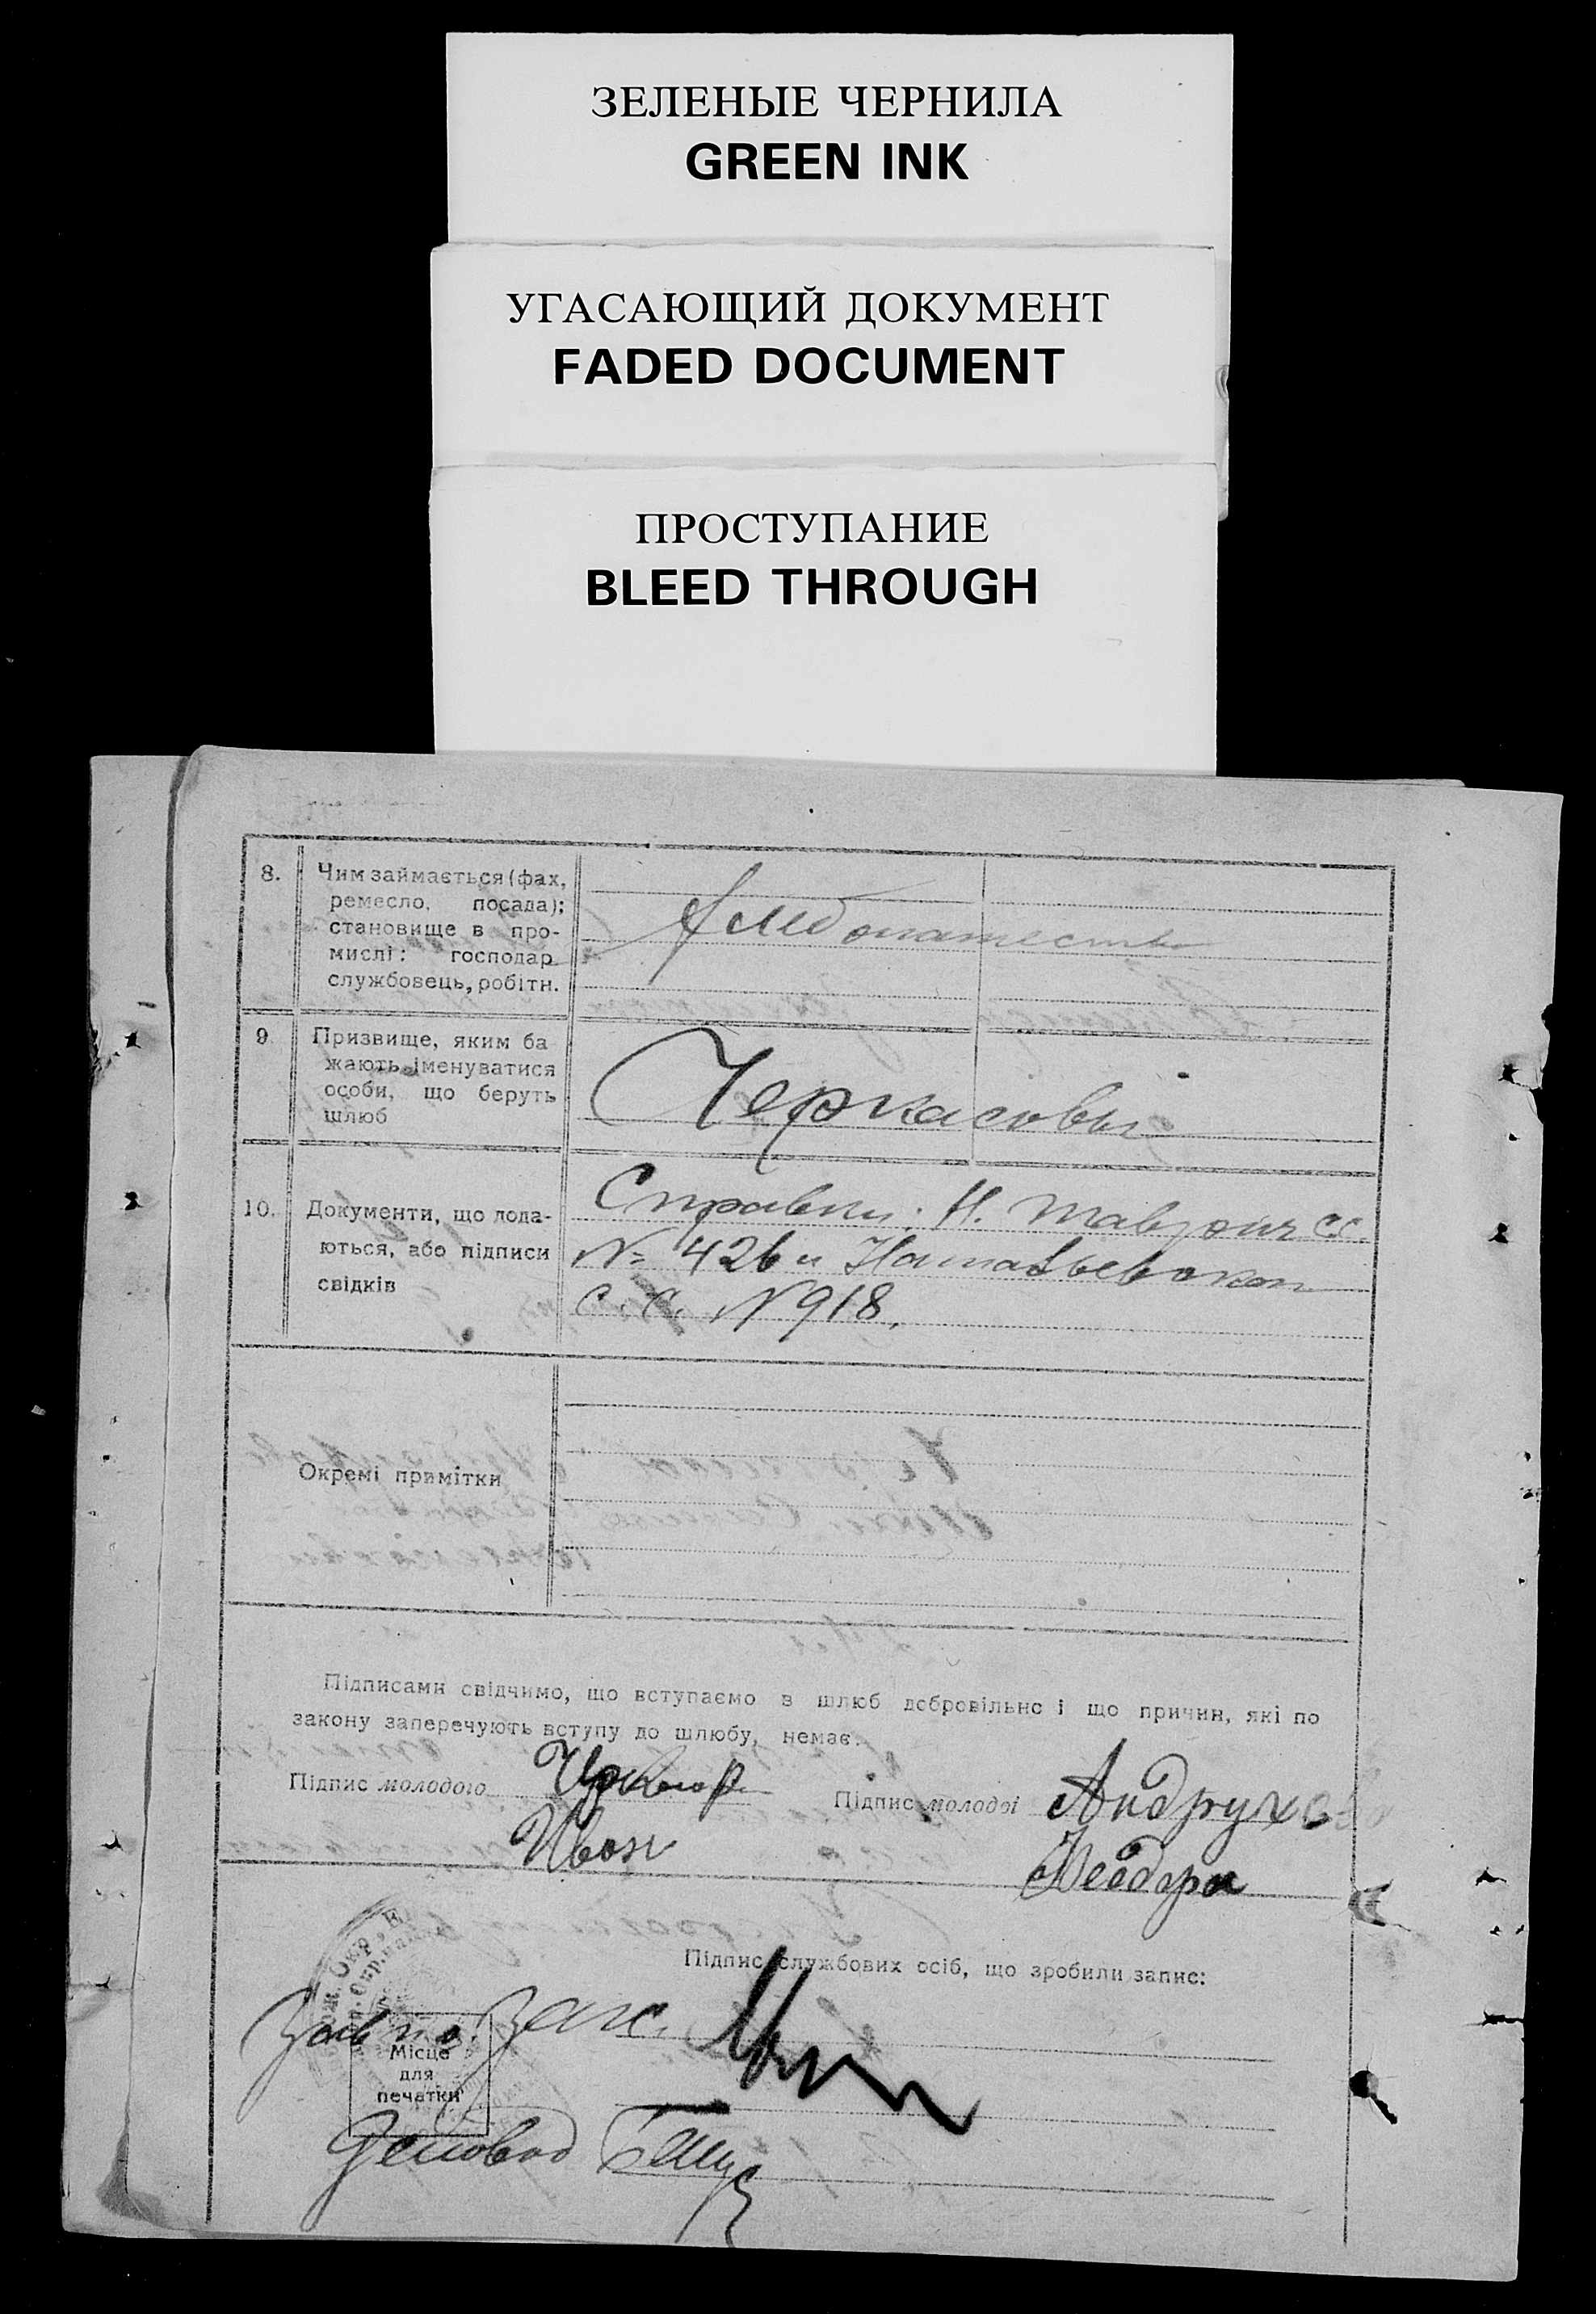 ЗЕЛЕНЫЕ ЧЕРНИЛА
GREEN INK
УГАСАЮЩИЙ ДОКУМЕНТ
FADED DOCUMENT
ПРОСТУПАНИЕ
BLEED THROUGH
8.
Чим займається (фах,
ремесло, посада);
становище в про-
мислі: господар
службовець, робітн.
Хлебопашество
9
Призвище, яким ба
жають іменуватися
особи, що беруть
шлюб
Черкасовы
10.
Документи, що дода-
ються, або підписи
свідків
Справки: Н. с.с.
№ 426 и
с. с. № 918.
Окремі примітки
Підписами свідчимо, що вступаємо в шлюб добровільно і що причин, які по
закону заперечують вступу до шлюбу, немає.
Підпис молодого
Иван
Підпис молодої Андрухо
Феодора
Підпис службових осіб, що зробили запис:
Загс.
Місце
для
печатки
Деловод